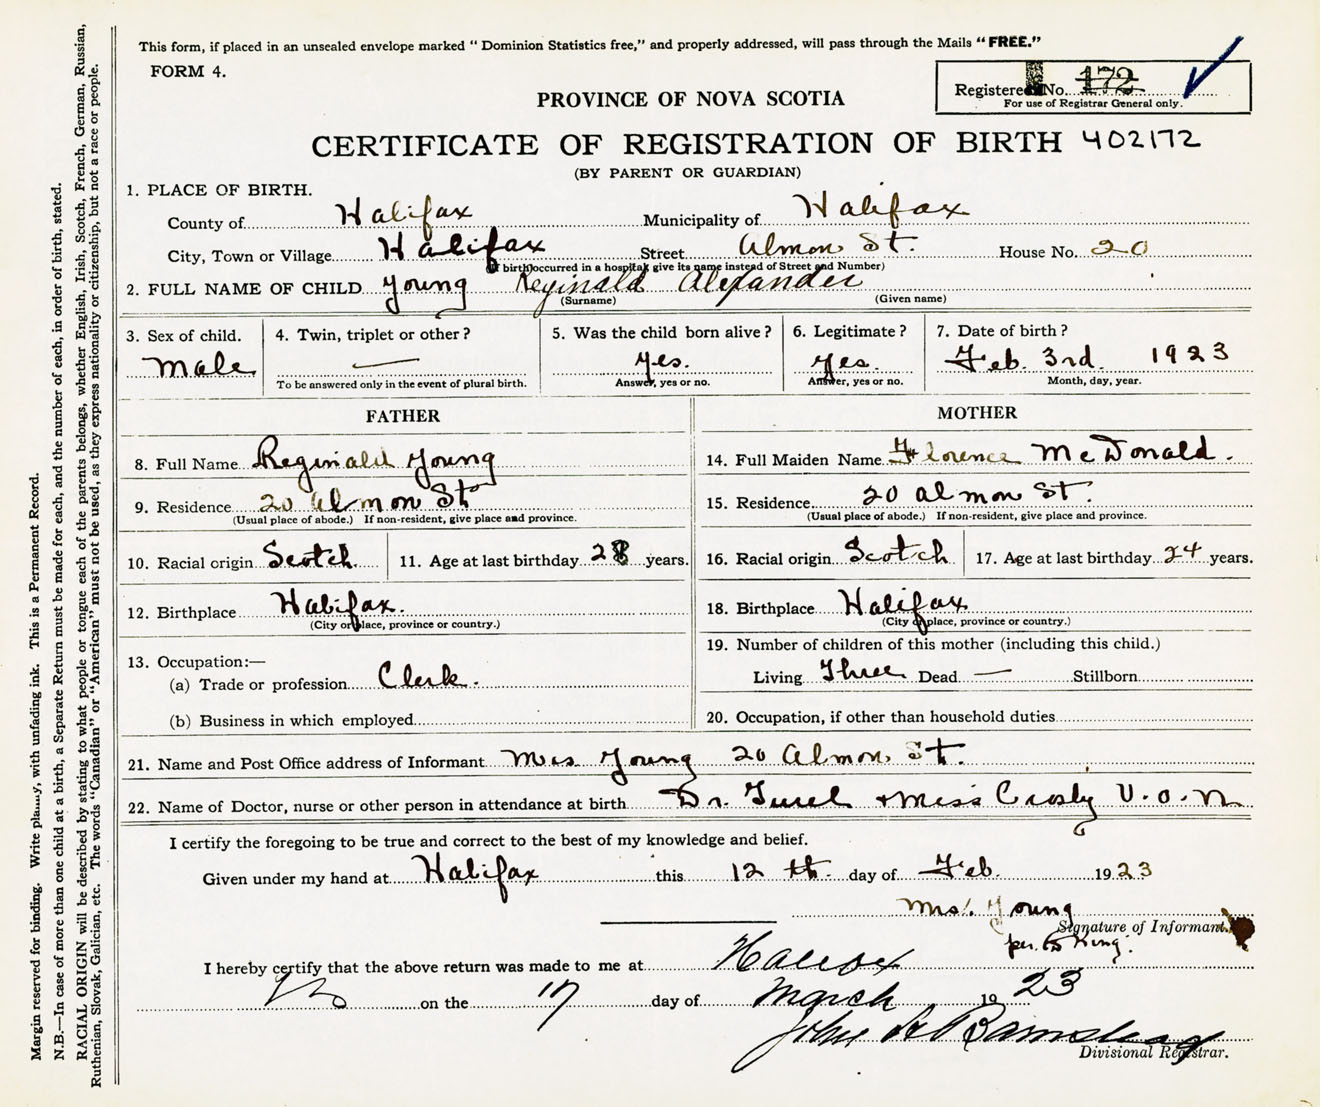 This form, if placed in an unsealed envelope marked "Dominion Statistics free," and properly addressed, will pass through the Mails "FREE."
FORM 4.
Registered No. 172
For use of Registrar General only.
PROVINCE OF NOVA SCOTIA
CERTIFICATE OF REGISTRATION OF BIRTH 402172
(BY PARENT OR GUARDIAN)
1. PLACE OF BIRTH.
County of Halifax Municipality of Halifax
City, Town or Village Halifax Street Almon St. House No. 20
(If birth occurred in a hospital, give its name instead of Street and Number)
2. FULL NAME OF CHILD Young Reginald Alexander
(Surname) (Given name)
3. Sex of child. 4. Twin, triplet or other? 5. Was the child born alive? 6. Legitimate? 7. Date of birth?
male — yes. yes. Feb. 3rd. 1923
To be answered only in the event of plural birth. Answer, yes or no. Answer, yes or no. Month, day, year.
FATHER
8. Full Name Reginald Young
9. Residence 20 Almon St
(Usual place of abode.) If non-resident, give place and province.
10. Racial origin Scotch. 11. Age at last birthday 28 years.
12. Birthplace Halifax.
(City or place, province or country.)
13. Occupation:—
(a) Trade or profession Clerk.
(b) Business in which employed
MOTHER
14. Full Maiden Name Florence McDonald.
15. Residence 20 Almon St.
(Usual place of abode.) If non-resident, give place and province.
16. Racial origin Scotch 17. Age at last birthday 24 years.
18. Birthplace Halifax
(City or place, province or country.)
19. Number of children of this mother (including this child.)
Living Three Dead — Stillborn
20. Occupation, if other than household duties
21. Name and Post Office address of Informant Mrs Young 20 Almon St.
22. Name of Doctor, nurse or other person in attendance at birth Dr. & Miss Crosby V.O.N
I certify the foregoing to be true and correct to the best of my knowledge and belief.
Given under my hand at Halifax this 12 th. day of Feb. 1923
Mrs. Young
Signature of Informant.
per. King.
I hereby certify that the above return was made to me at Halifax
on the 17 day of March 1923
John
Divisional Registrar.
Margin reserved for binding. Write plainly, with unfading ink. This is a Permanent Record.
N.B.—In case of more than one child at a birth, a Separate Return must be made for each, and the number of each, in order of birth, stated.
RACIAL ORIGIN will be described by stating to what people or tongue each of the parents belongs, whether English, Irish, Scotch, French, German, Russian,
Ruthenian, Slovak, Galician, etc. The words "Canadian" or "American" must not be used, as they express nationality or citizenship, but not a race or people.